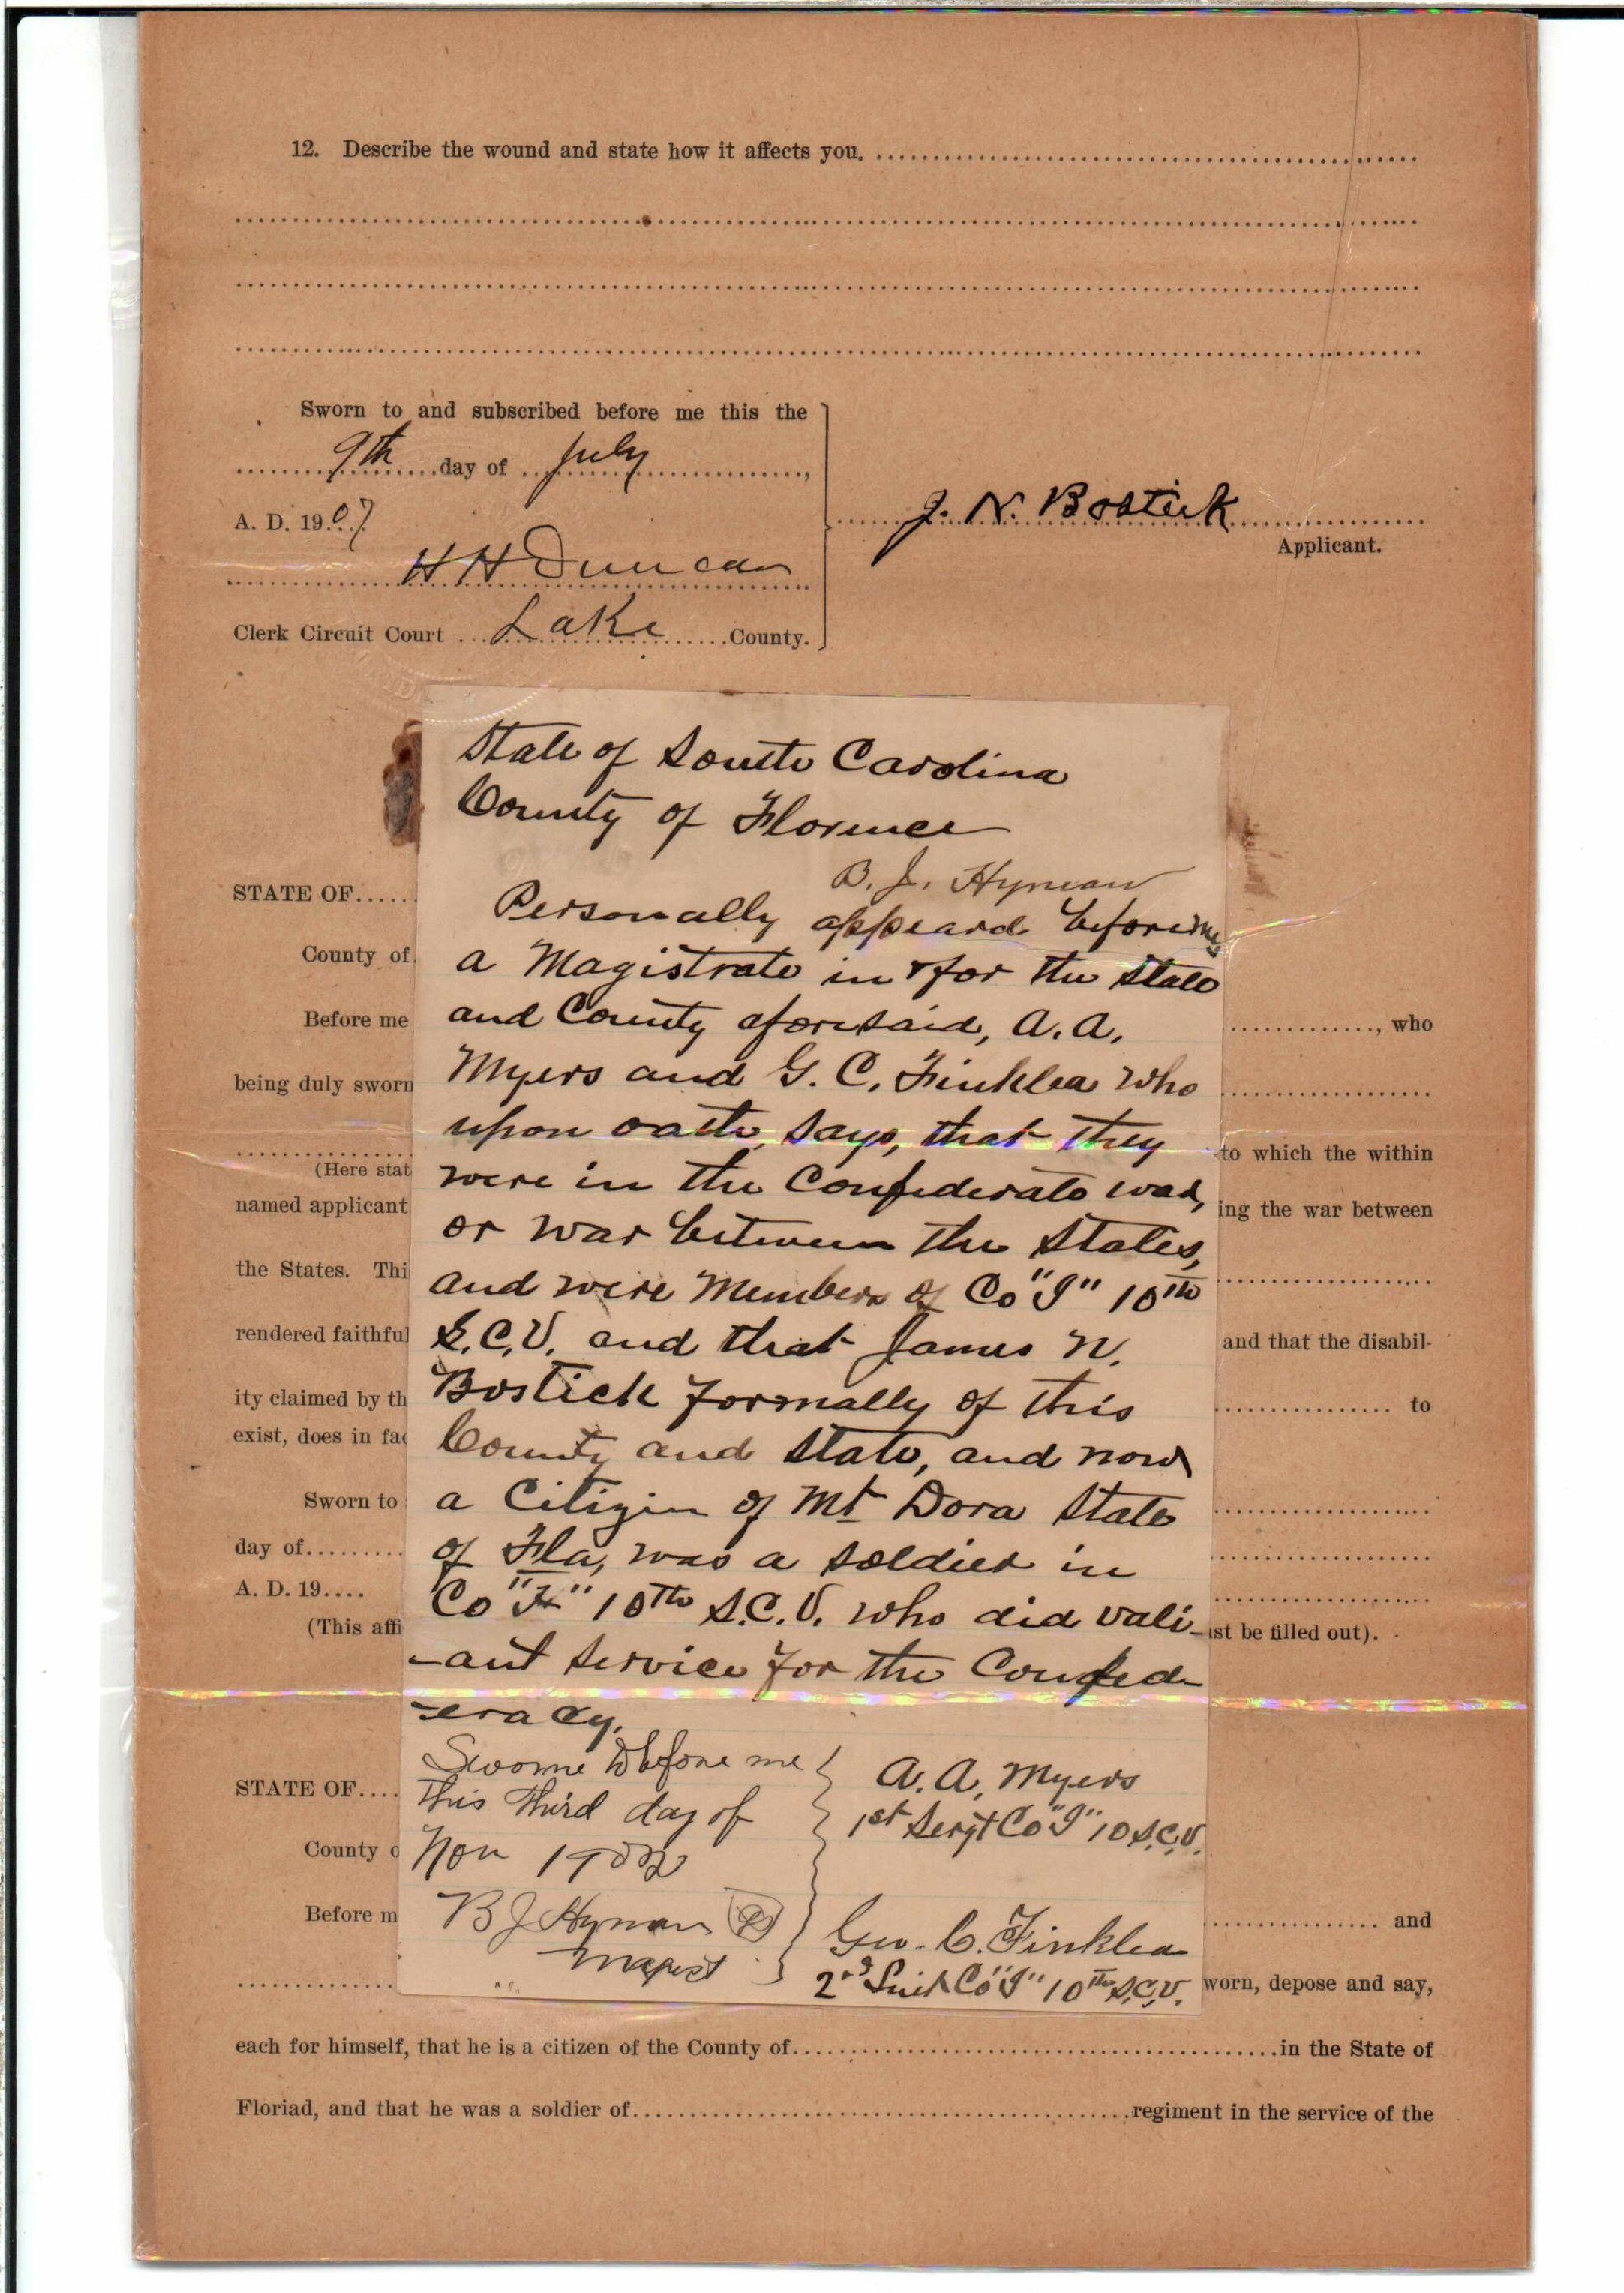 12. Describe the wound and state how it affects you.
Sworn to and subscribed before me this the
9th day of July,
A. D. 1907
H H Duncan
Clerk Circuit Court Lake County.
J. N. Bostick
Applicant.
State of South Carolina
County of Florence
B. J. Hyman
Personally appeard before me,
a Magistrate in & for the State
and County aforesaid, A. A.
Myers and G. C. Finklea who
upon oath, says, that they
were in the Confederate war,
or war between the States,
and were Members of Co "I" 10th
S.C.V. and that James N.
Bostick formally of this
County and State, and now
a Citizen of Mt Dora State
of Fla, was a soldier in
Co "F" 10th S.C.V. who did vali-
-ant service for the Confed-
=eracy.
Sworne to before me
this third day of
Nov 1902
B J Hyman
Magist
A. A. Myers
1st Sergt Co "I" 10 S.C.V.
Geo. C. Finklea
2nd Lieut Co "I" 10th S.C.V.
STATE OF
County of
Before me
, who
being duly sworn
to which the within
(Here stat
named applicant
ing the war between
the States. Thi
rendered faithful
and that the disabil-
ity claimed by th
to
exist, does in fac
Sworn to
day of
A. D. 19
(This affi
ust be filled out).
STATE OF
County o
Before m
and
worn, depose and say,
each for himself, that he is a citizen of the County of in the State of
Floriad, and that he was a soldier of regiment in the service of the